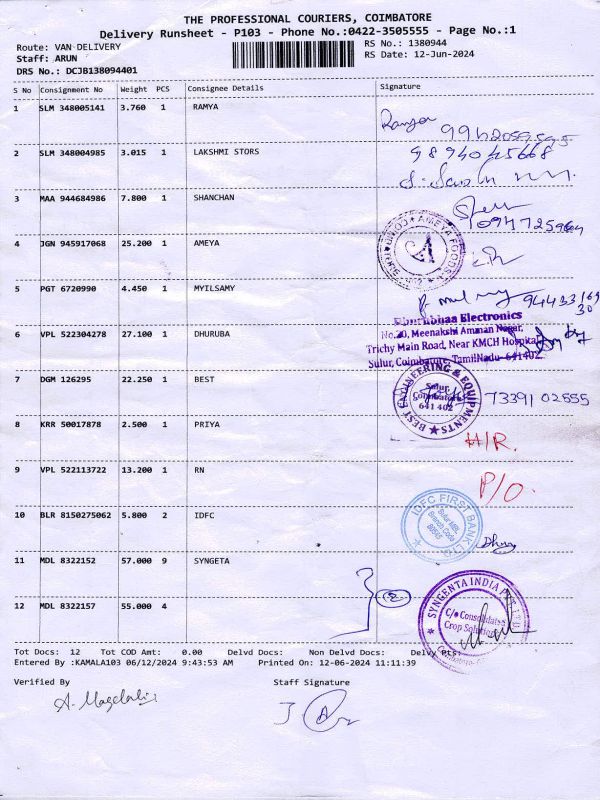 THE PROFESSIONAL COURIERS, COIMBATORE
Delivery Runsheet - P103 - Phone No.:0422-3505555 - Page No.:1
Route: VAN DELIVERY RS No.: 1380944
Staff: ARUN RS Date: 12-Jun-2024
DRS No.: DCJB138094401
S No Consignment No Weight PCS Consignee Details Signature
1 SLM 348005141 3.760 1 RAMYA
Ramya
2 SLM 348004985 3.015 1 LAKSHMI STORS
9894045668
3 MAA 944684986 7.800 1 SHANCHAN
4 JGN 945917068 25.200 1 AMEYA
AMEYA FOODS
A
5 PGT 6720990 4.450 1 MYILSAMY
9443316930
Dhurubhaa Electronics
6 VPL 522304278 27.100 1 DHURUBA
No.20, Meenakshi Amman Nagar,
Trichy Main Road, Near KMCH Hospital
Sulur, Coimbatore, TamilNadu- 641402
7 DGM 126295 22.250 1 BEST
BEST ENGINEERING & EQUIPMENTS
Sulur
Coimbatore
641 402
7339102555
8 KRR 50017878 2.500 1 PRIYA
H/R.
9 VPL 522113722 13.200 1 RN
P/O.
10 BLR 8150275062 5.800 2 IDFC
IDFC FIRST BANK LTD.
Branch Code
11 MDL 8322152 57.000 9 SYNGETA
12 MDL 8322157 55.000 4
SYNGENTA INDIA PVT. LTD
C/o Consolidated
Crop Solutions
Tot Docs: 12 Tot COD Amt: 0.00 Delvd Docs: Non Delvd Docs: Delvy Pts:
Entered By :KAMALA103 06/12/2024 9:43:53 AM Printed On: 12-06-2024 11:11:39
Verified By Staff Signature